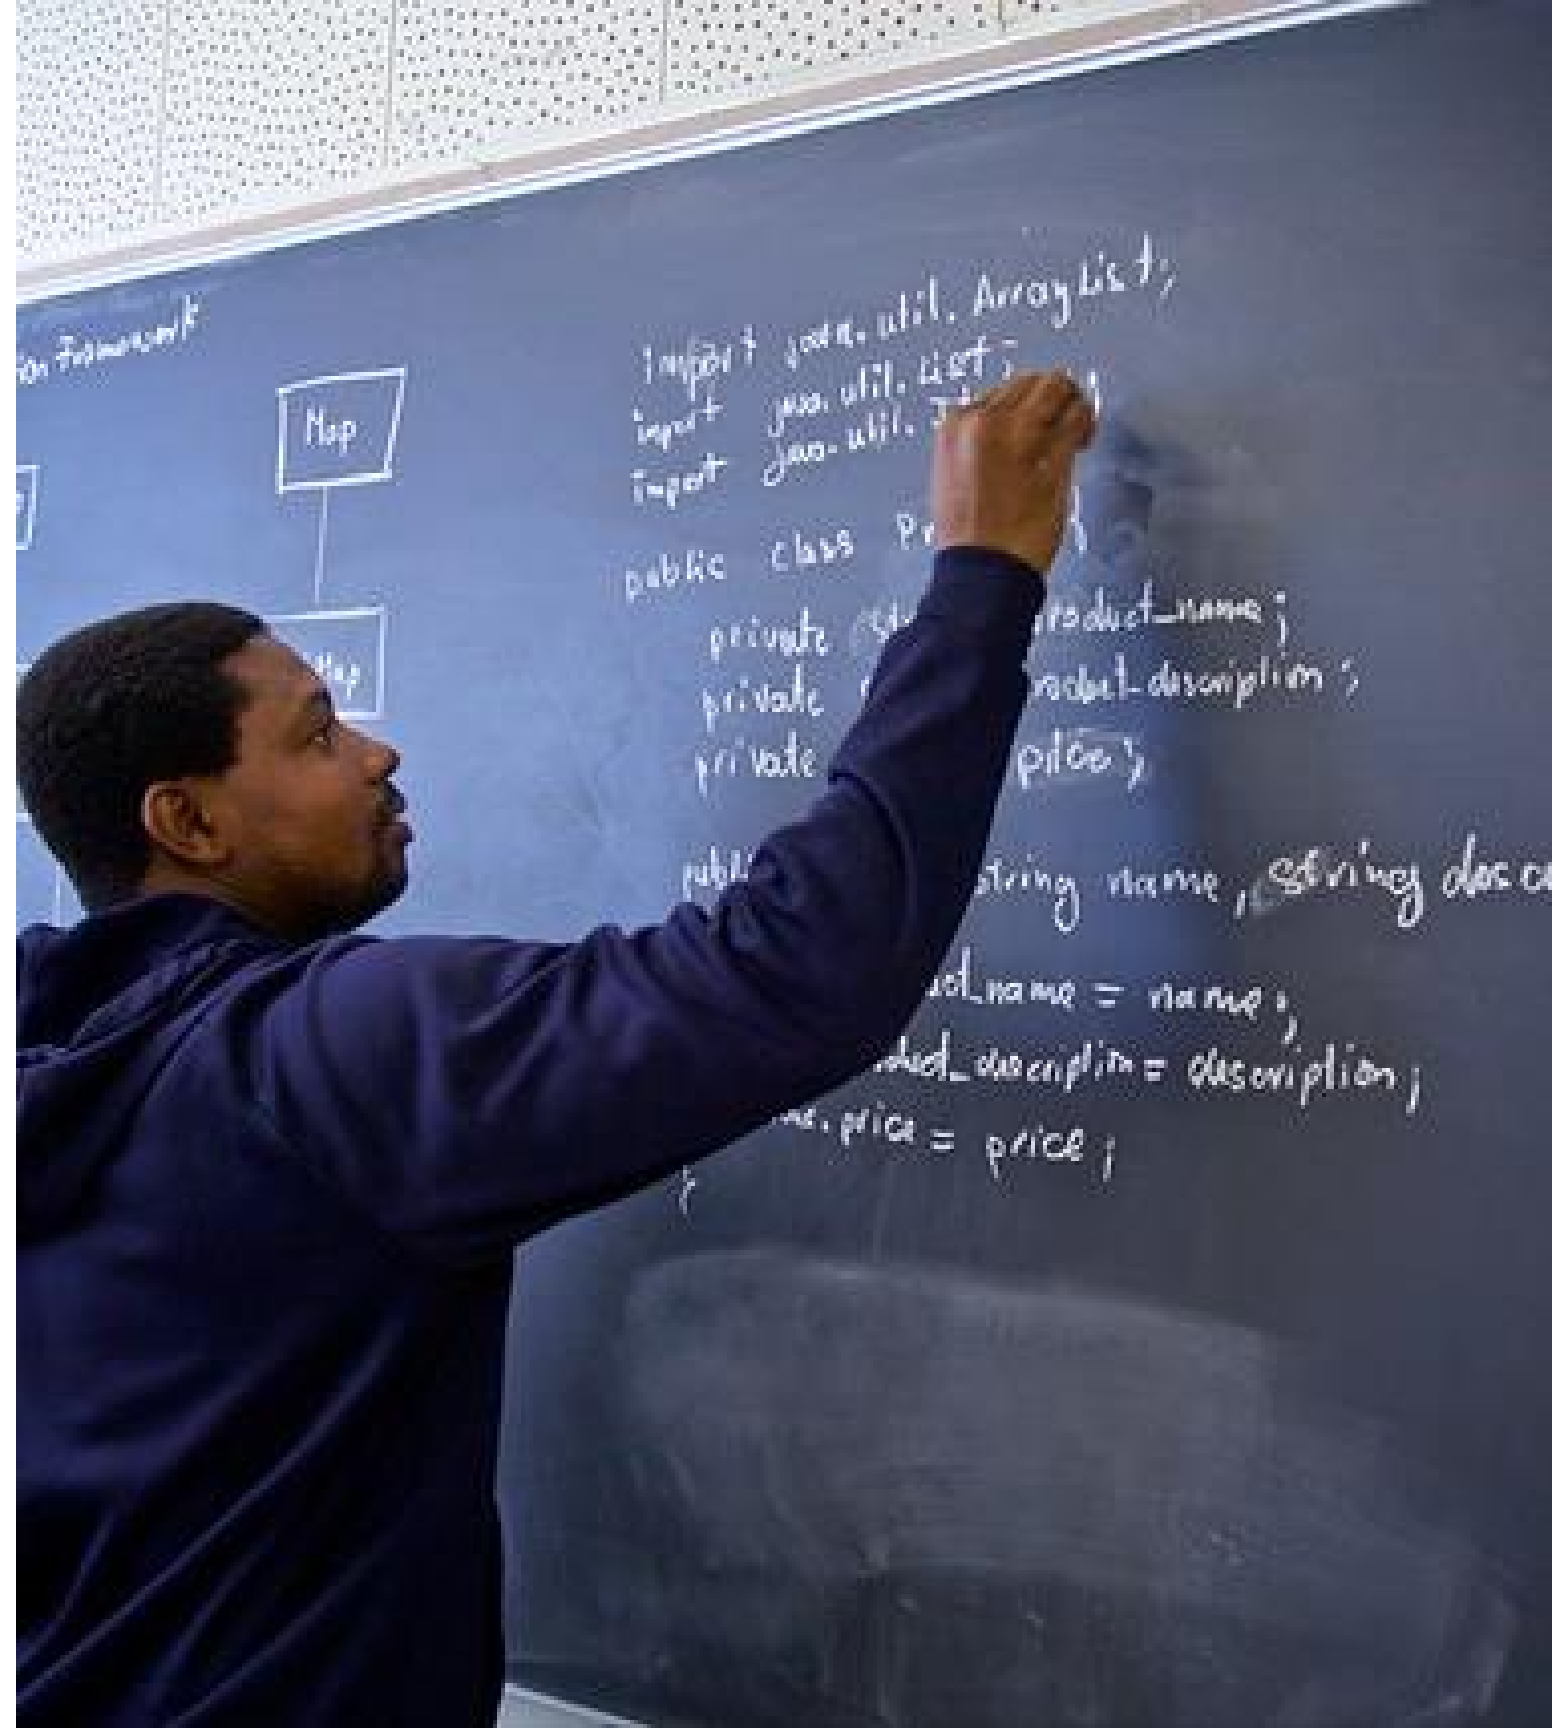 Framework
Map
Map
import java.util.ArrayList;
import java.util.List;
import java.util.
public class {
private product_name;
private product_description;
private price;
string name, string
name = name;
description = description;
.price = price;
}